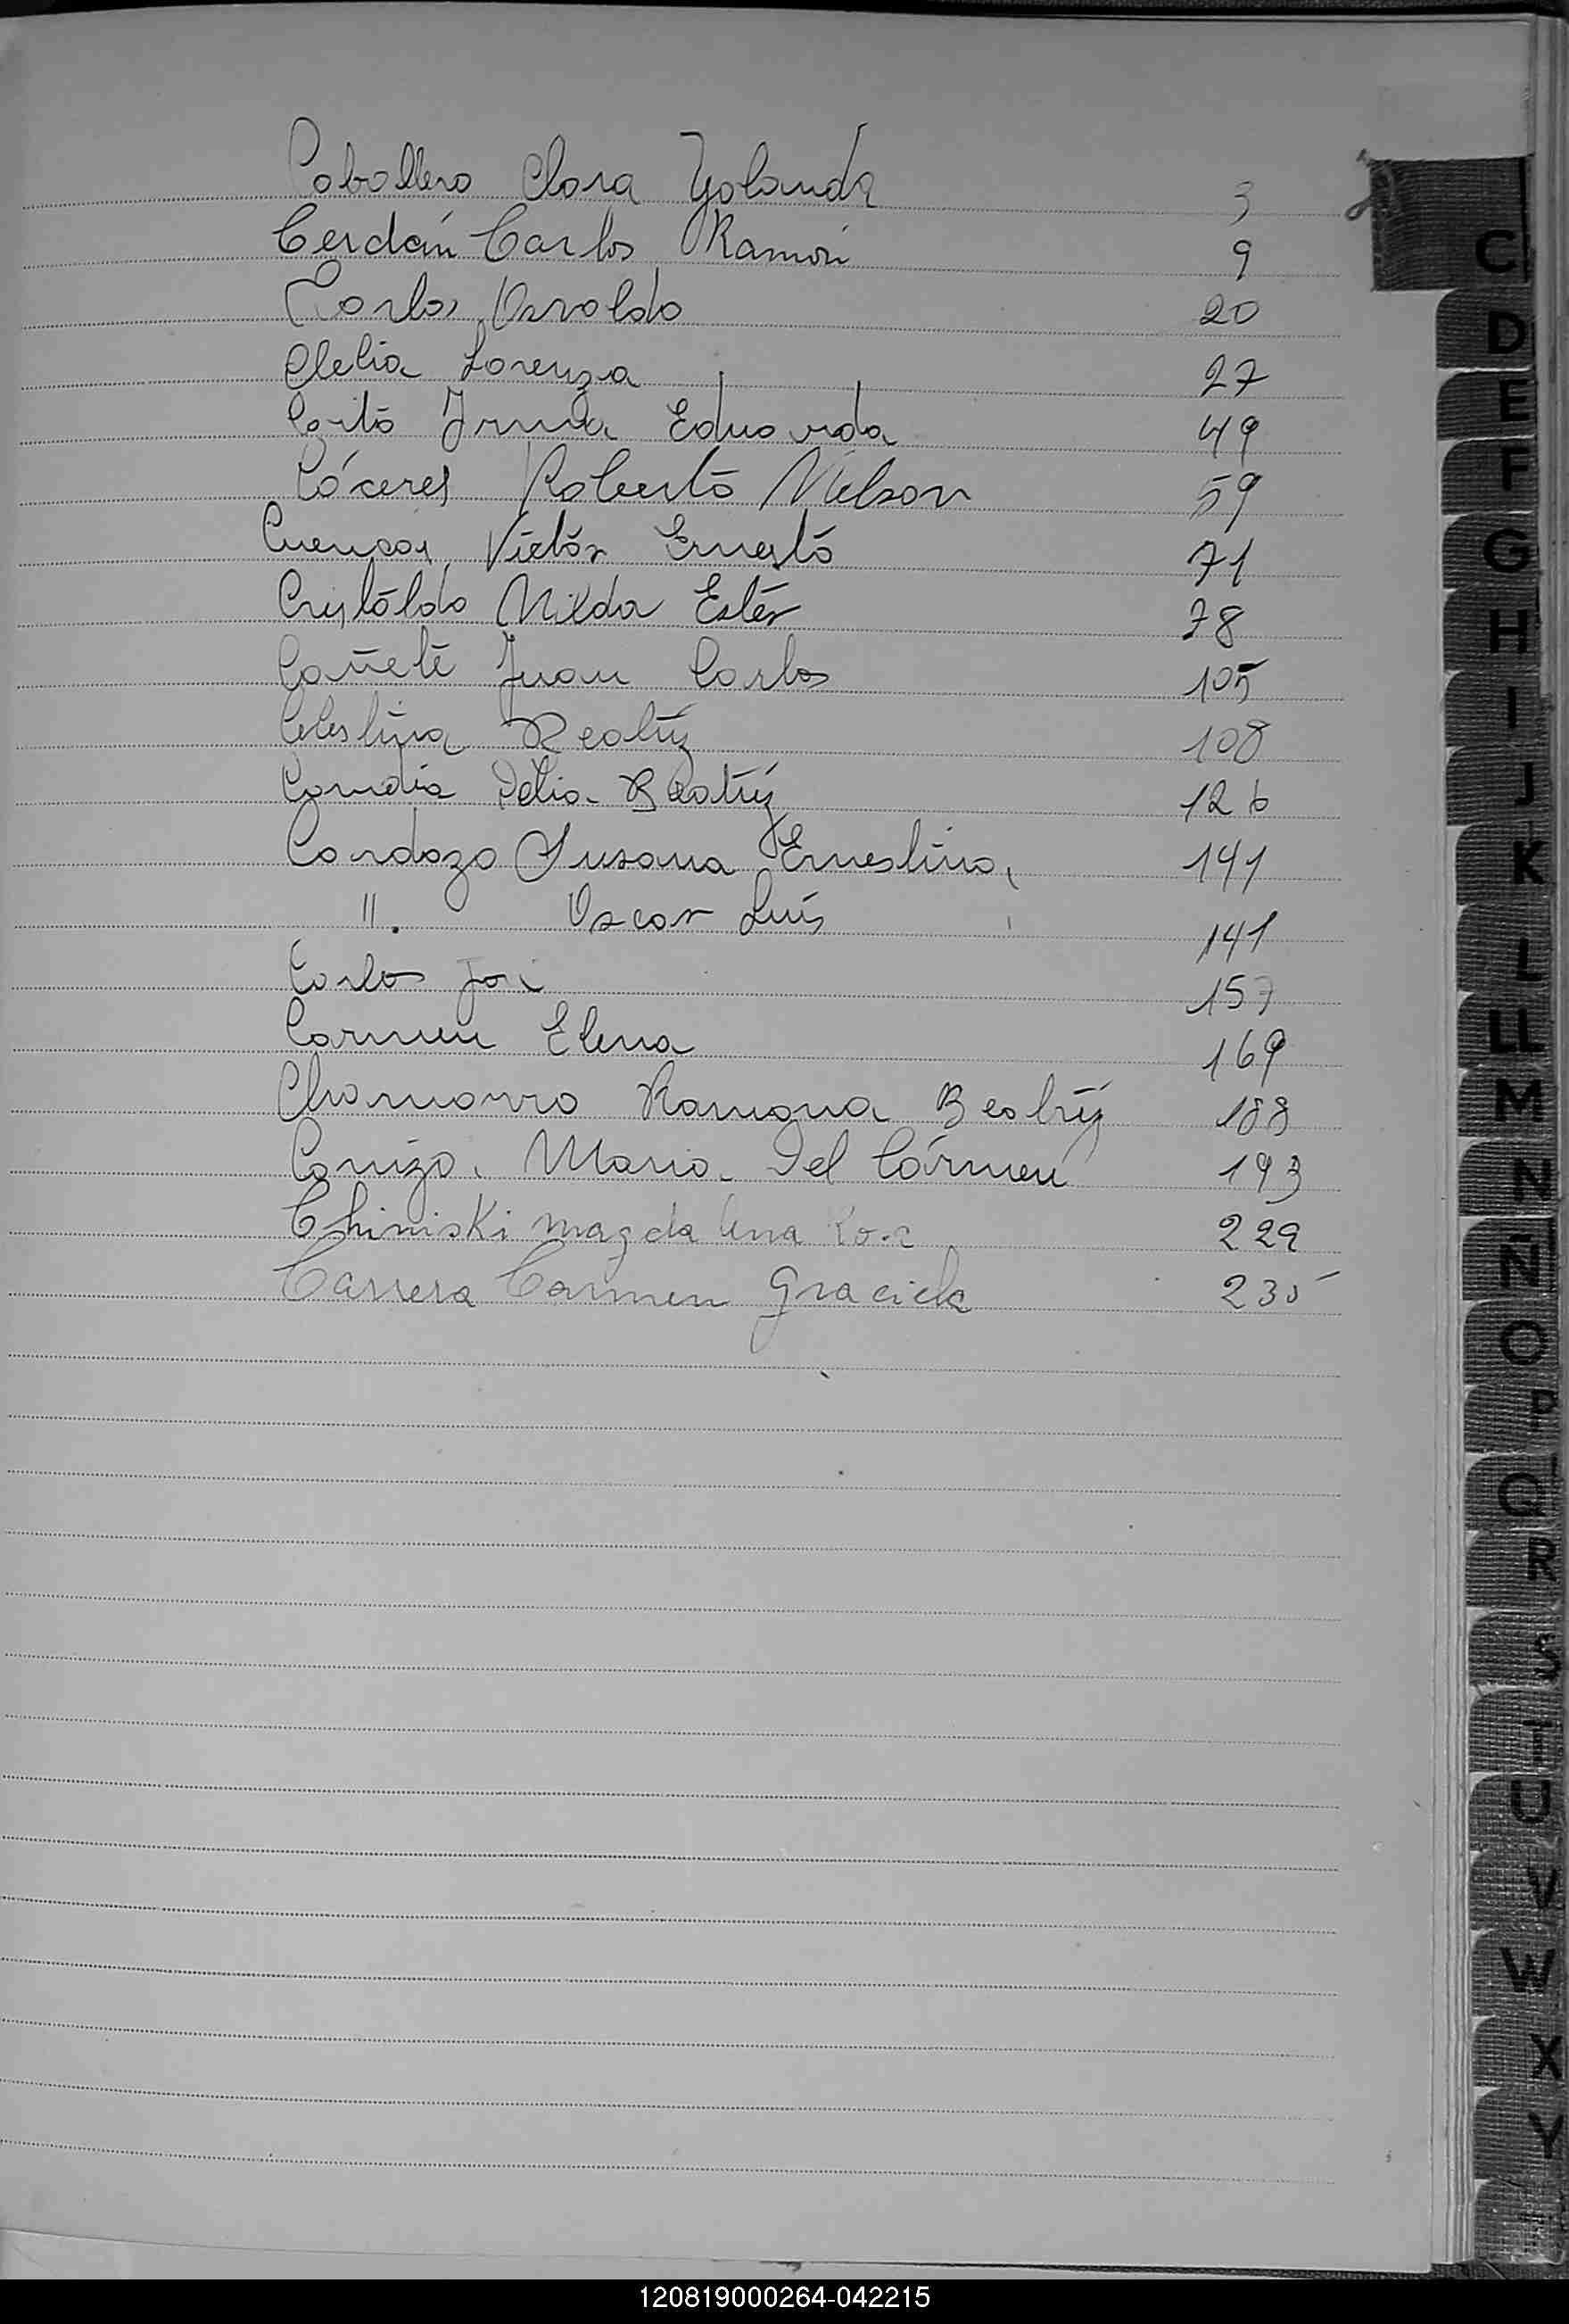 Caballero Clara Yolanda 3
Cerdán Carlos Ramón 9
Carlos Osvaldo 20
Clelia Lorenza 27
Irma Eduarda 49
Cáceres Roberto Nelson 59
Cuencas Victor Ernesto 71
Cristaldo Nilda Ester 78
Cañete Juan Carlos 105
Celestina Beatriz 108
Candia Delia Beatriz 126
Cardozo Susana Ernestina 141
". Oscar Luis 141
Carlos José 157
Carmen Elena 169
Chamorro Ramona Beatriz 188
Caniza Maria Del Cármen 193
Chiniski Magdalena 229
Carrera Carmen Graciela 235
C
D
E
F
G
H
I
J
K
L
LL
M
N
Ñ
O
P
Q
R
S
T
U
V
W
X
Y
120819000264-042215